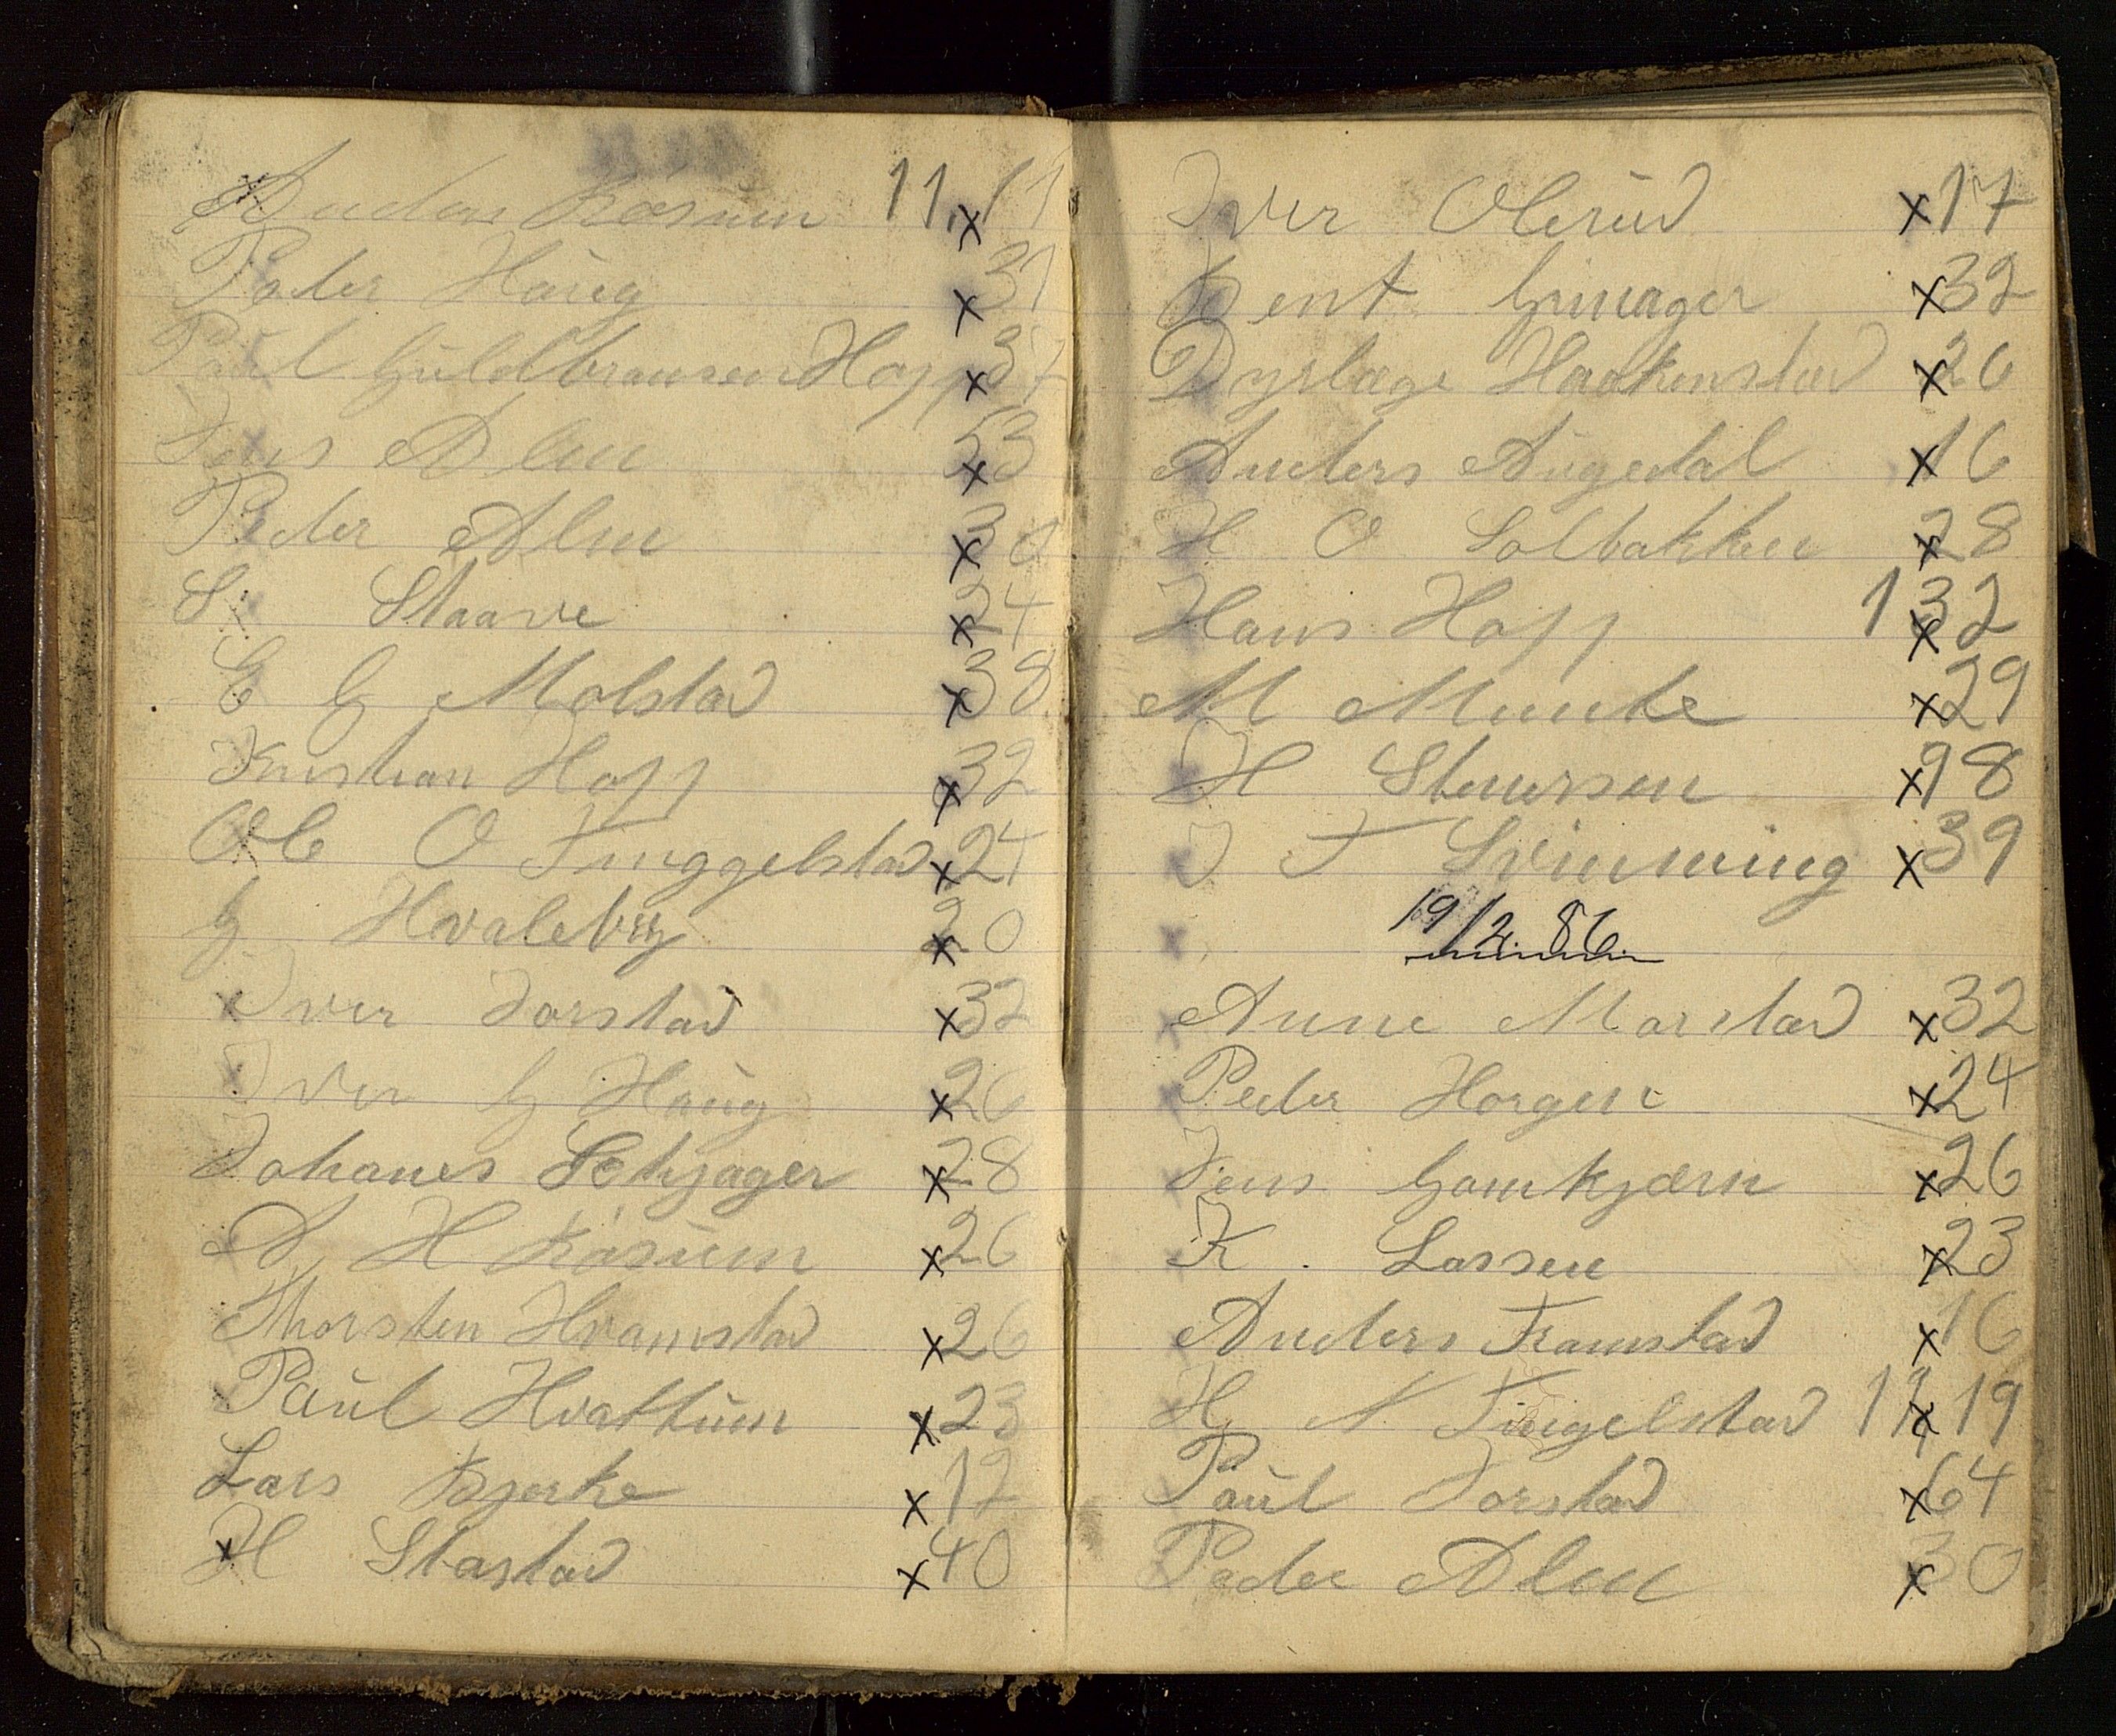 Anders Kosum 11,11
Peder Haug x31
Paul Guldbransen Hopp x37
Jens Alm x53
Peder Alm x30
S. Staave x24
E G Molstad x38
Kristian Hopp x32
Ole O Tinggelstad x24
G Hvaleby x20
Iver Jorstad x32
Iver G Haug x26
Johanes Sehjager x28
A H Kosum x26
Thorsten Hvamstad x26
Paul Hvattum x23
Lars Bjerke x12
H Stastad x40
Iver Olerud x17
Bent Grinager x32
Haakenstad x26
Anders Augedal x16
H O Solbakken x28
Hans Hopp 1x32
M Munke x29
H Stenersen x98
J T Svinning x39
19/12. 86.
Anne Morstad x32
Peder Horgen x24
Jens Gamkjærn x26
K. Lassen x23
Anders Framstad x16
H N Tingelstad x19
Paul Jorstad x64
Peder Alm x30